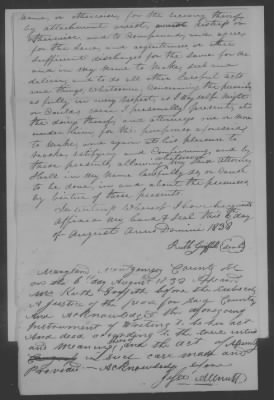 name, or otherwise, for the recovery thereof
by attachment arrest, distress or
otherwise and to Compound, and agree
for the same, and acquittances or other
sufficient discharges for the same for me
and in my name to make, seal and
deliver, and to do all other lawful acts
and things, whatsoever, concerning the premises
as fully in every respect, as I my self might
or Could do, were I personally present, at
the doing thereof, and attorneys one or more
under them, for the purposes aforesaid
to make, and again at his pleasure to
revoke, ratifying and Confirming, and by
these presents, allowing whatsoever my said attorney
shall in my name lawfully do or Cause
to be done, in and about the premises
by virtue of these presents
In witness whereof I have hereunto
affixed my hand & seal this 6 day
of August Anno Domini 1838
Ruth Griffith (Seal)
Maryland Montgomery County Sct
on the 6th day August 1838 Appears
Mrs Ruth Griffith before the subscriber
A Justice of the peace for said County
and Acknowledged the aforegoing
Instrument of Writing to be her act
And deed according to the true intent
and meaning and the act of Assembly
in such case made and
Provided — Acknowledged before